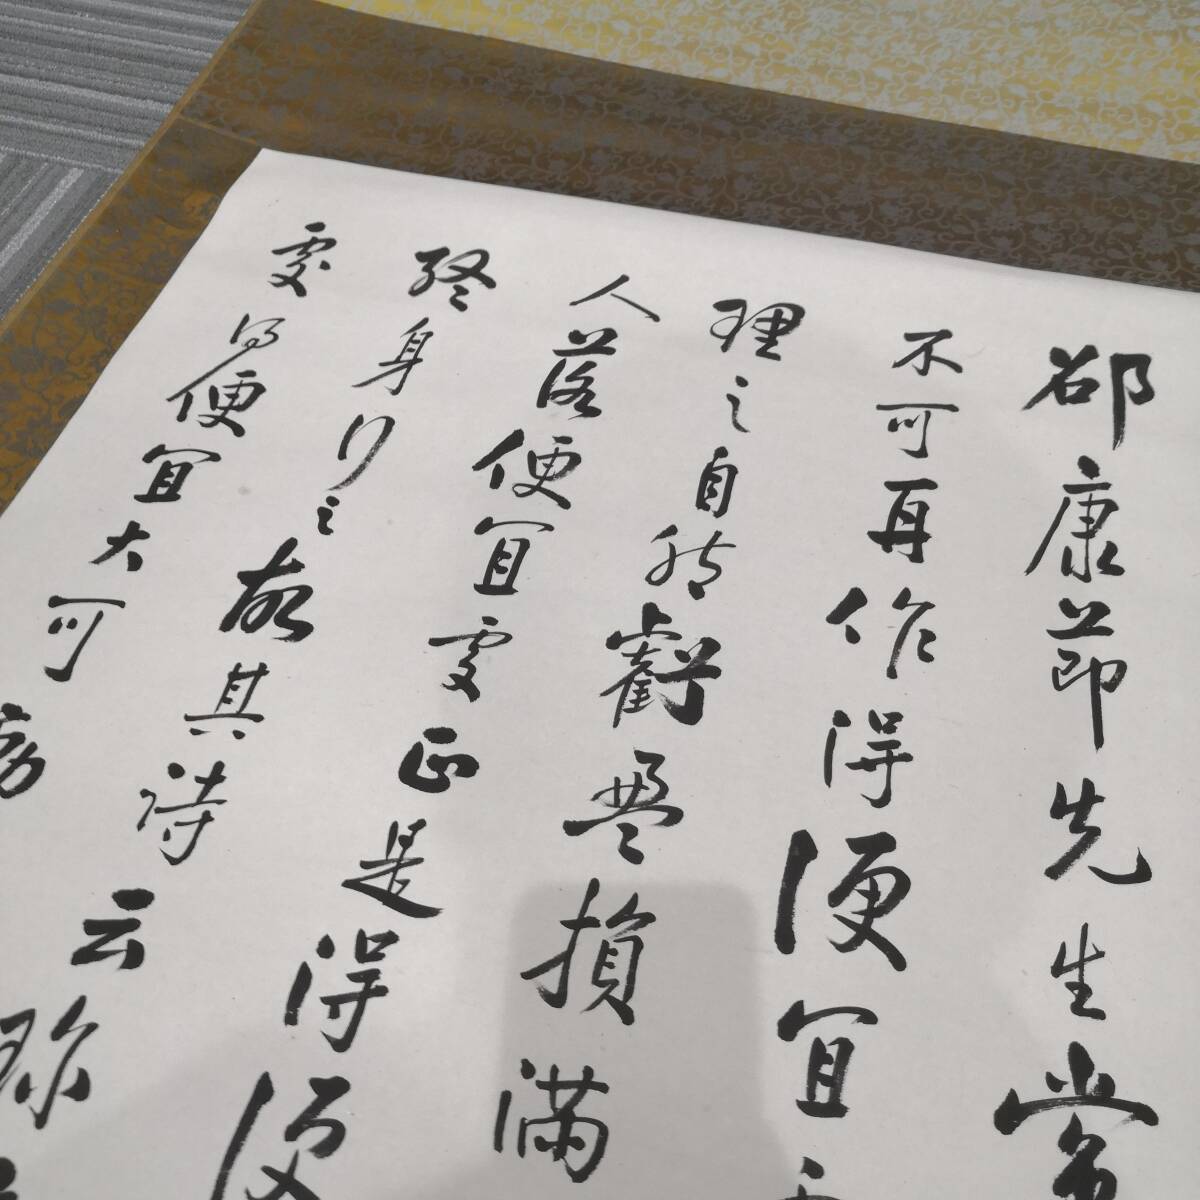 邵康節先生常
不可再作得便宜
理之自然虧盈損滿
人落便宜處正是得便
終身行之故其詩云珎
處得便宜大可